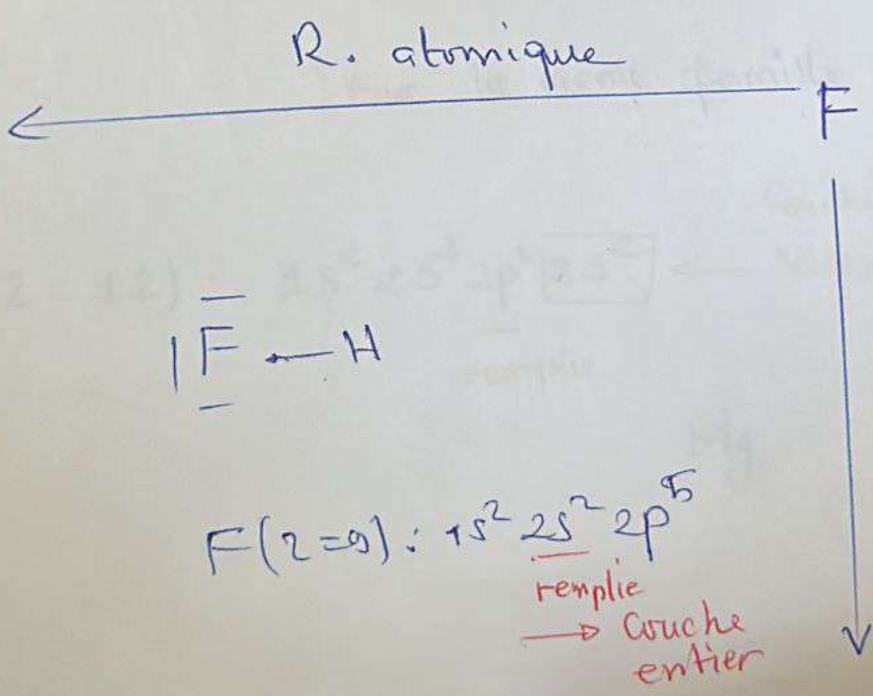 R. atomique
F
|F — H
F(Z=9): 1s² 2s² 2p⁵
remplie
→ Couche
entier